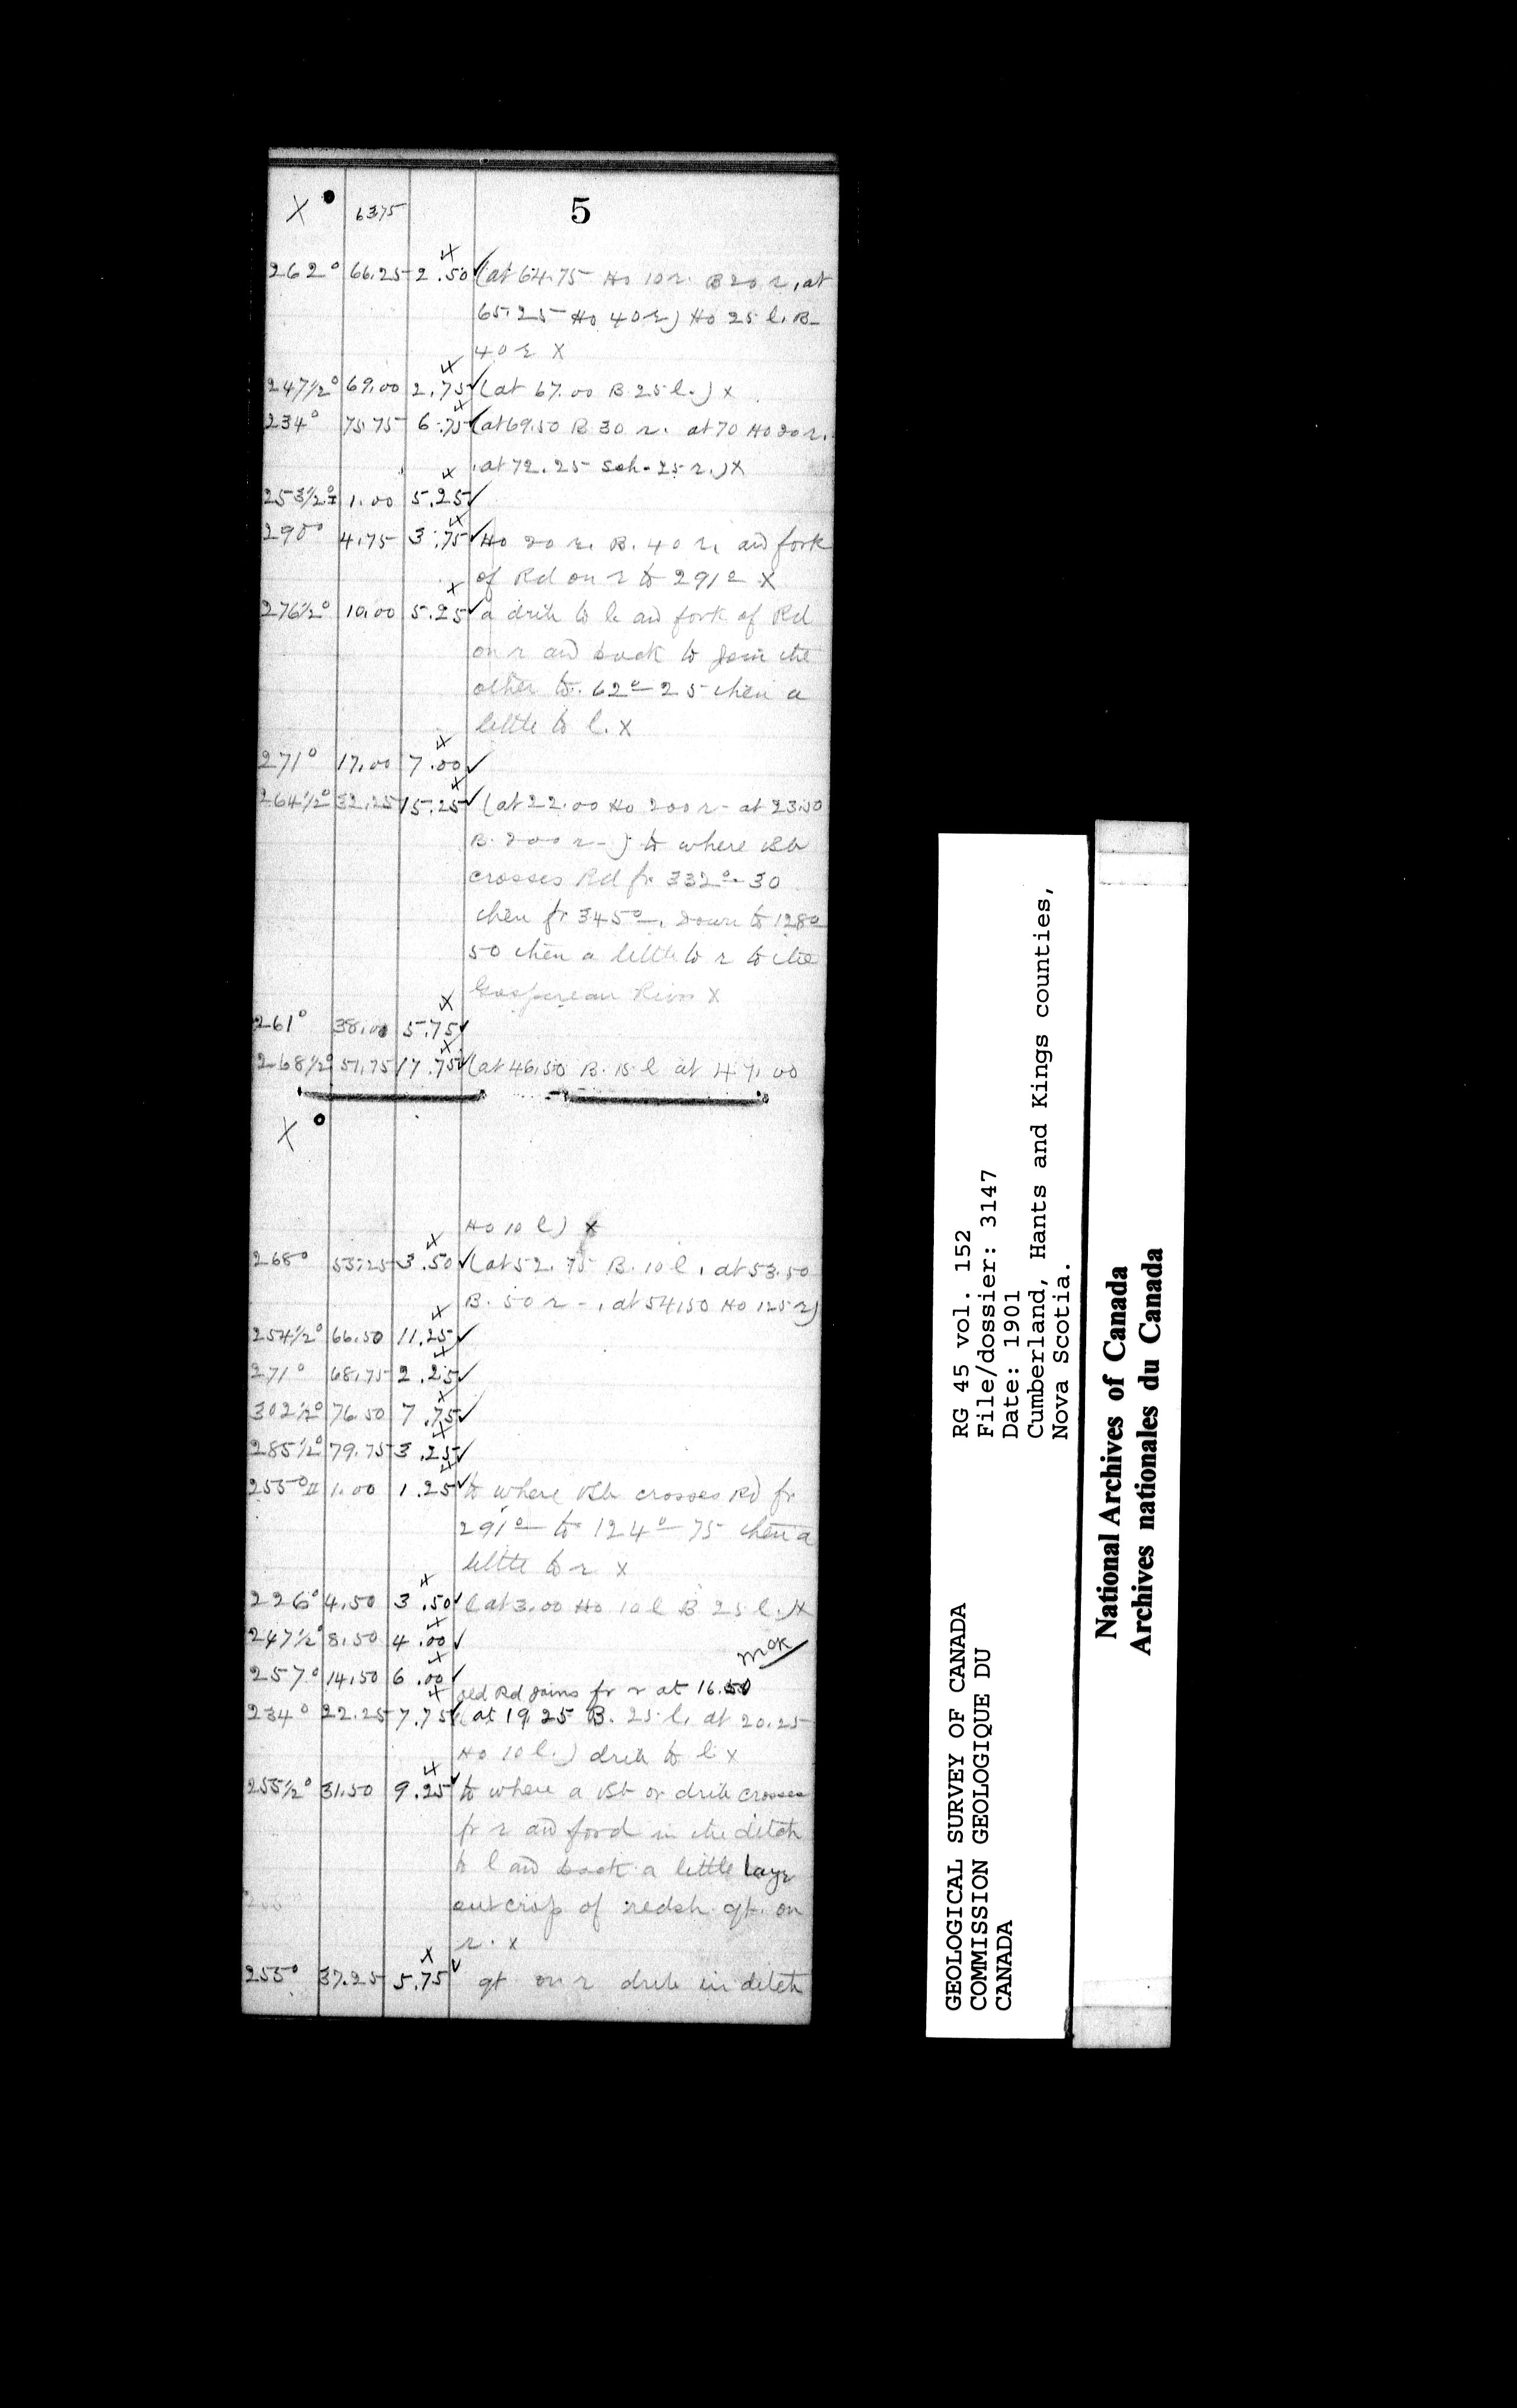 5
X° 6375
262° 66.25 2.50 ✓ (at 64.75 Ho 10 r. B 20 r, at
65.25 Ho 40 r) Ho 25 l. B
40 r X
247½° 69.00 2.75 ✓ (at 67.00 B 25 l.) x
234° 75.75 6.75 ✓ (at 69.50 B 30 r. at 70 Ho 20 r.
at 72.25 Sch. 25 r.) X
253½° I 1.00 5.25 ✓
290° 4.75 3.75 ✓ Ho 20 r. B. 40 r. and fork
of Rd on r to 291° X
276½° 10.00 5.25 ✓ a drib to l. and fork of Rd
on r and back to join the
other to 62° 25 then a
little to l. X
271° 17.00 7.00 ✓
264½° 32.25 15.25 ✓ (at 22.00 Ho 200 r - at 23.50
B. 200 r -) to where Bk
crosses Rd fr. 332° 30
then fr 345°. Down to 128°
50 then a little to r to the
Gaspereau River X
261° 38.00 5.75 ✓
268½° 51.75 17.75 ✓ (at 46.50 B. 15 l at 47.00
X°
Ho 10 l) x
268° 55.25 3.50 ✓ (at 52.75 B. 10 l, at 53.50
B. 50 r -, at 54.50 Ho 125 r)
254½° 66.50 11.25 ✓
271° 68.75 2.25 ✓
302½° 76.50 7.75 ✓
285½° 79.75 3.25 ✓
255° II 1.00 1.25 ✓ to where Bk crosses Rd fr.
291° to 124° 75 then a
little to r x
226° 4.50 3.50 ✓ (at 3.00 Ho 10 l B 25 l.) X
247½° 8.50 4.00 ✓
257° 14.50 6.00 ✓
old Rd joins fr r at 16.50
234° 22.25 7.75 ✓ (at 19.25 B. 25 l, at 20.25
Ho 10 l.) drib to l x
255½° 31.50 9.25 ✓ to where a Bk or drib crosses
fr r and ford in the ditch
to l and back a little large
outcrop of redsh qt. on
r. x
255° 37.25 5.75 ✓ qt on r drib in ditch
GEOLOGICAL SURVEY OF CANADA
COMMISSION GEOLOGIQUE DU
CANADA
RG 45 vol. 152
File/dossier: 3147
Date: 1901
Cumberland, Hants and Kings counties,
Nova Scotia.
National Archives of Canada
Archives nationales du Canada